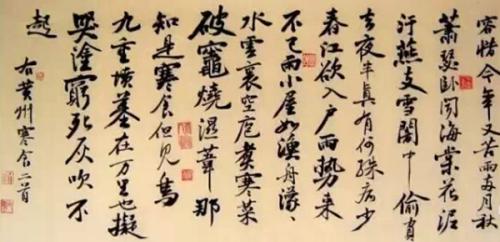 容惜今年又苦雨两月秋
蕭瑟卧聞海棠花泥
汙燕支雪闇中偷負
去夜半真有何殊病少
春江欲入户雨势来
不已雨小屋如漁舟濛〻
水雲裏空庖煮寒菜
破竈燒濕葦那
知是寒食但見烏
九重墳墓在万里也擬
哭塗窮死灰吹不
起
右黄州寒食二首